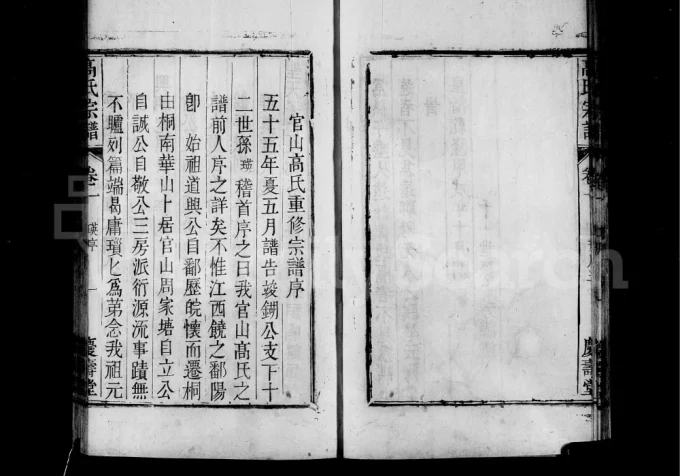 官山高氏重修宗譜序
五十五年夏五月譜告竣錫公支下十
二世孫瑛稽首序之曰我官山高氏之
譜前人序之詳矣不惟江西饒之鄱陽
卽 始祖道興公自鄱歷皖懷而遷桐
由桐南華山卜居官山周家塘自立公
自誠公自敬公三房派衍源流事蹟無
不臚列篇端曷庸瑣匕爲第念我祖元
高氏宗譜
卷一
瑛序
一
慶壽堂
高氏宗譜
卷
慶壽堂
Search